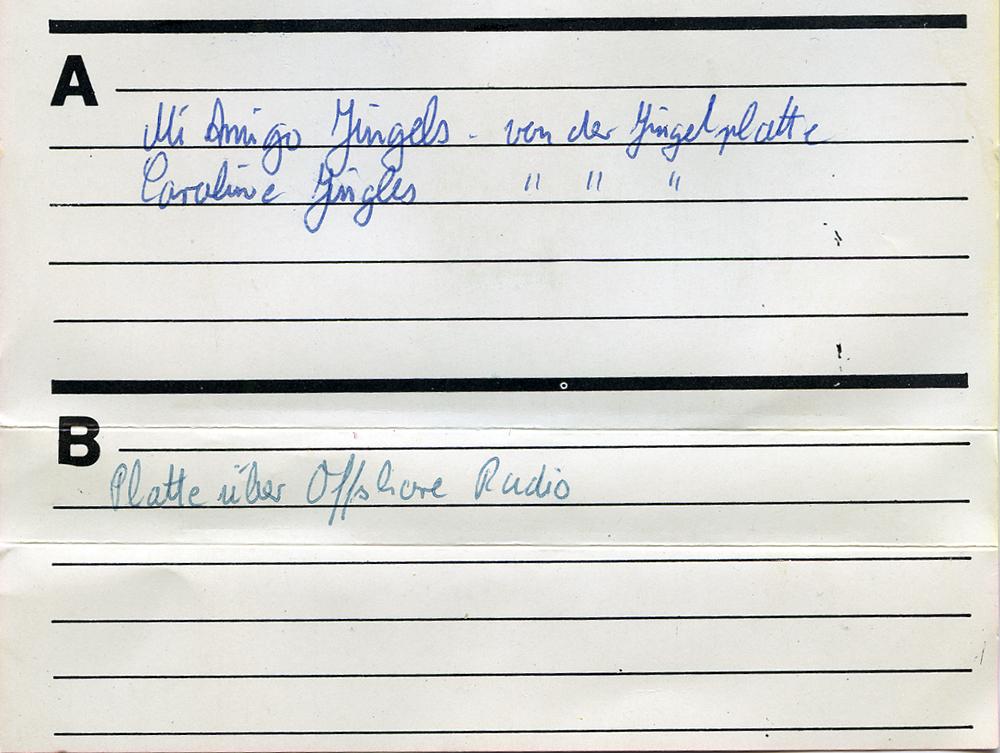 A
Mi Amigo Jingels - von der Jingelplatte
Caroline Jingles " " "
B
Platte über Offshore Radio